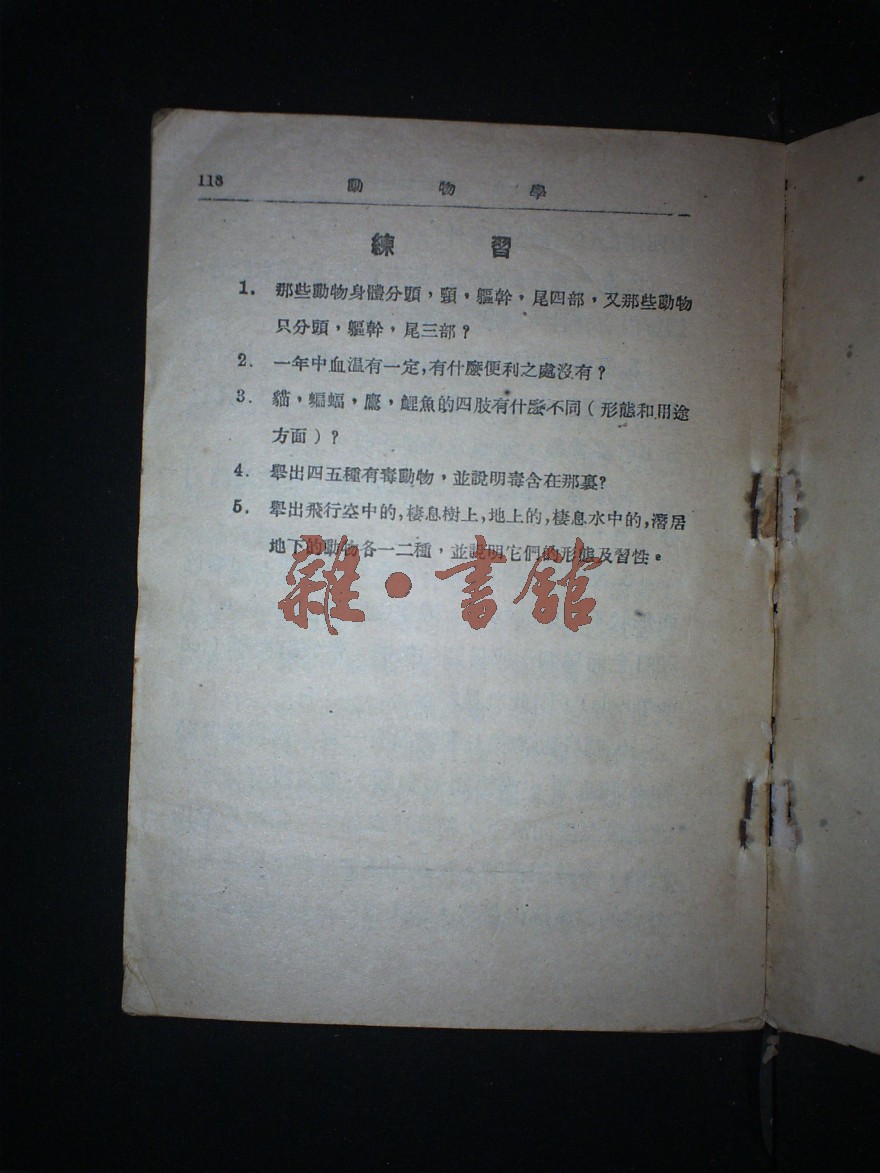 118 動物學
練習
1. 那些動物身體分頭，頸，軀幹，尾四部，又那些動物
只分頭，軀幹，尾三部？
2. 一年中血温有一定，有什麼便利之處沒有？
3. 貓，蝙蝠，鷹，鯉魚的四肢有什麼不同（形態和用途
方面）？
4. 舉出四五種有毒動物，並說明毒含在那裏？
5. 舉出飛行空中的，棲息樹上，地上的，棲息水中的，潛居
地下的動物各一二種，並說明它們的形態及習性。
雜·書館